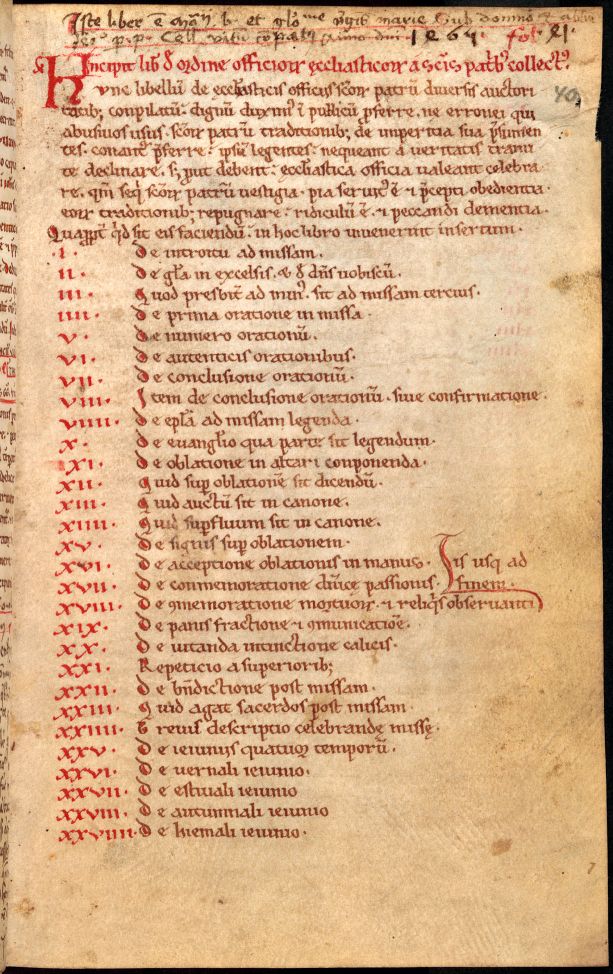 Iste liber ē
Incipit lib d ordine officiorꝝ ęccłiasticorꝝ a scīs patⁱbꝯ collectꝯ.
Hvnc libellū de ęccłiasticis officiis scōꝝ patrū diversis auctori
tatibꝫ conpilatū. dignū duximꝯ i publicū pferre. ne erronei qui
abusivos usus. scōꝝ patrū traditionibꝫ, de imperitia sua psumen
tes. conantᷣ pferre. ipsū legentes. nequeant a veritatis trami
te declinare. sꝫ put debent. ecclīastica officia valeant celebra
re. qm̄ seq̇ scōꝝ patrū vestigia. pia servitꝯ ē ⁊ pcepti obedientia.
eoꝝ traditionibꝫ repugnare. ridiculū ē. ⁊ peccandi dementia.
Quapᵖt qᵈd sit eis faciendū. in hoc libro invenerint insertum.
40
.I. De introitu ad missam.
II. De gła in excelsis. & d dn̄s vobiscū.
III. Quod presbitᷣ ad minꝯ. sit ad missam tercius.
IIII. De prima oratione in missa.
V. De numero orationū.
VI. De autenticis orationibus.
VII. De conclusione orationū.
VIII. Item de conclusione orationū. sive confirmatione.
VIIII. De epła ad missam legenda.
X. De evangłio qua parte sit legendum.
XI. De oblatione in altari conponenda.
XII. Quid sup oblationē sit dicendū.
XIII. Quid auctū sit in canone.
XIIII. Quid supfluum sit in canone.
XV. De signis sup oblationem.
XVI. De acceptione oblationis in manus. Iis usq ad
XVII. De conmemoratione divicę passionis. finem.
XVIII. De ꝯmemoratione mortuoꝝ. ⁊ reliqⁱs observanti
XIX. De panis fractione ⁊ ꝯmunicatiōe.
XX. De vitanda intinctione calicis.
XXI. Repeticio a superioribꝫ
XXII. De bn̄dictione post missam.
XXIII. Quid agat sacerdos post missam.
XXIIII. Brevis descriptio celebrandę missę.
XXV. De ieiuniis quatuor temporū.
XXVI. De vernali ieiunio.
XXVII. De estivali ieiunio
XXVIII. De autumnali ieiunio
XXVIIII. De hiemali ieiunio.